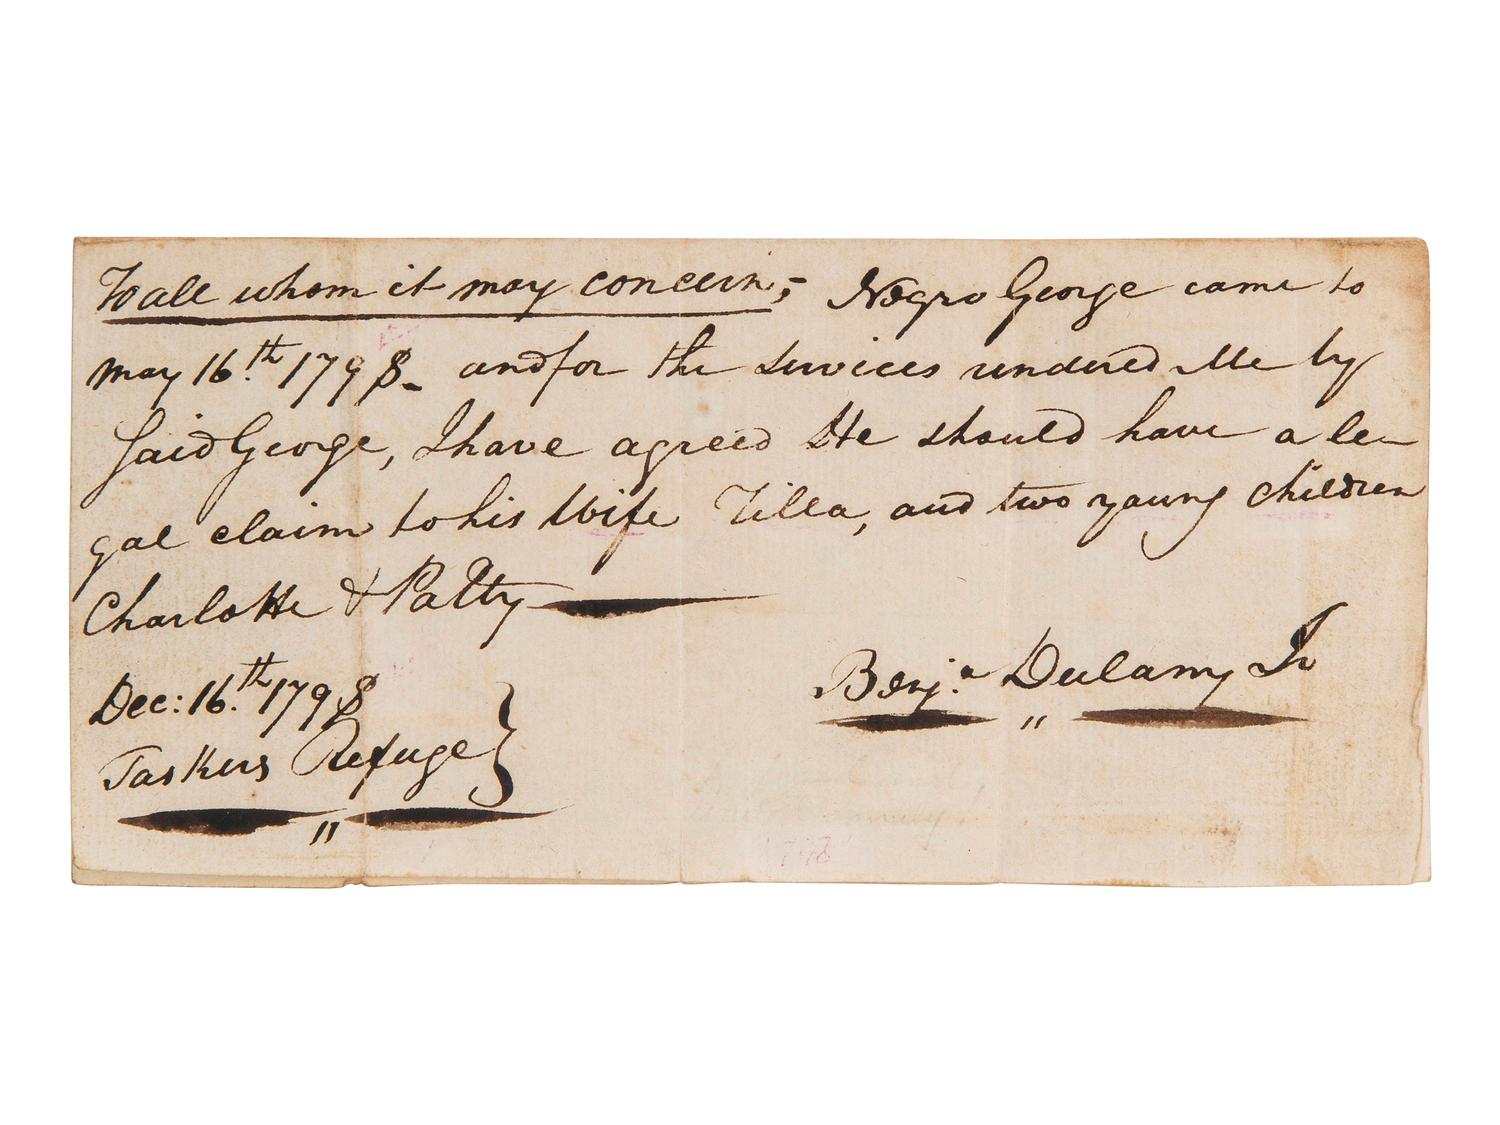 To all whom it may concern;- Negro George came to
may 16.th 1798- and for the services rendered Me by
Said George, I have agreed He should have a le-
gal claim to his Wife Tilla, and two young children
Charlotte & Patty
Dec: 16.th 1798
Benj.a Dulany Jr
Taskers Refuge
1798